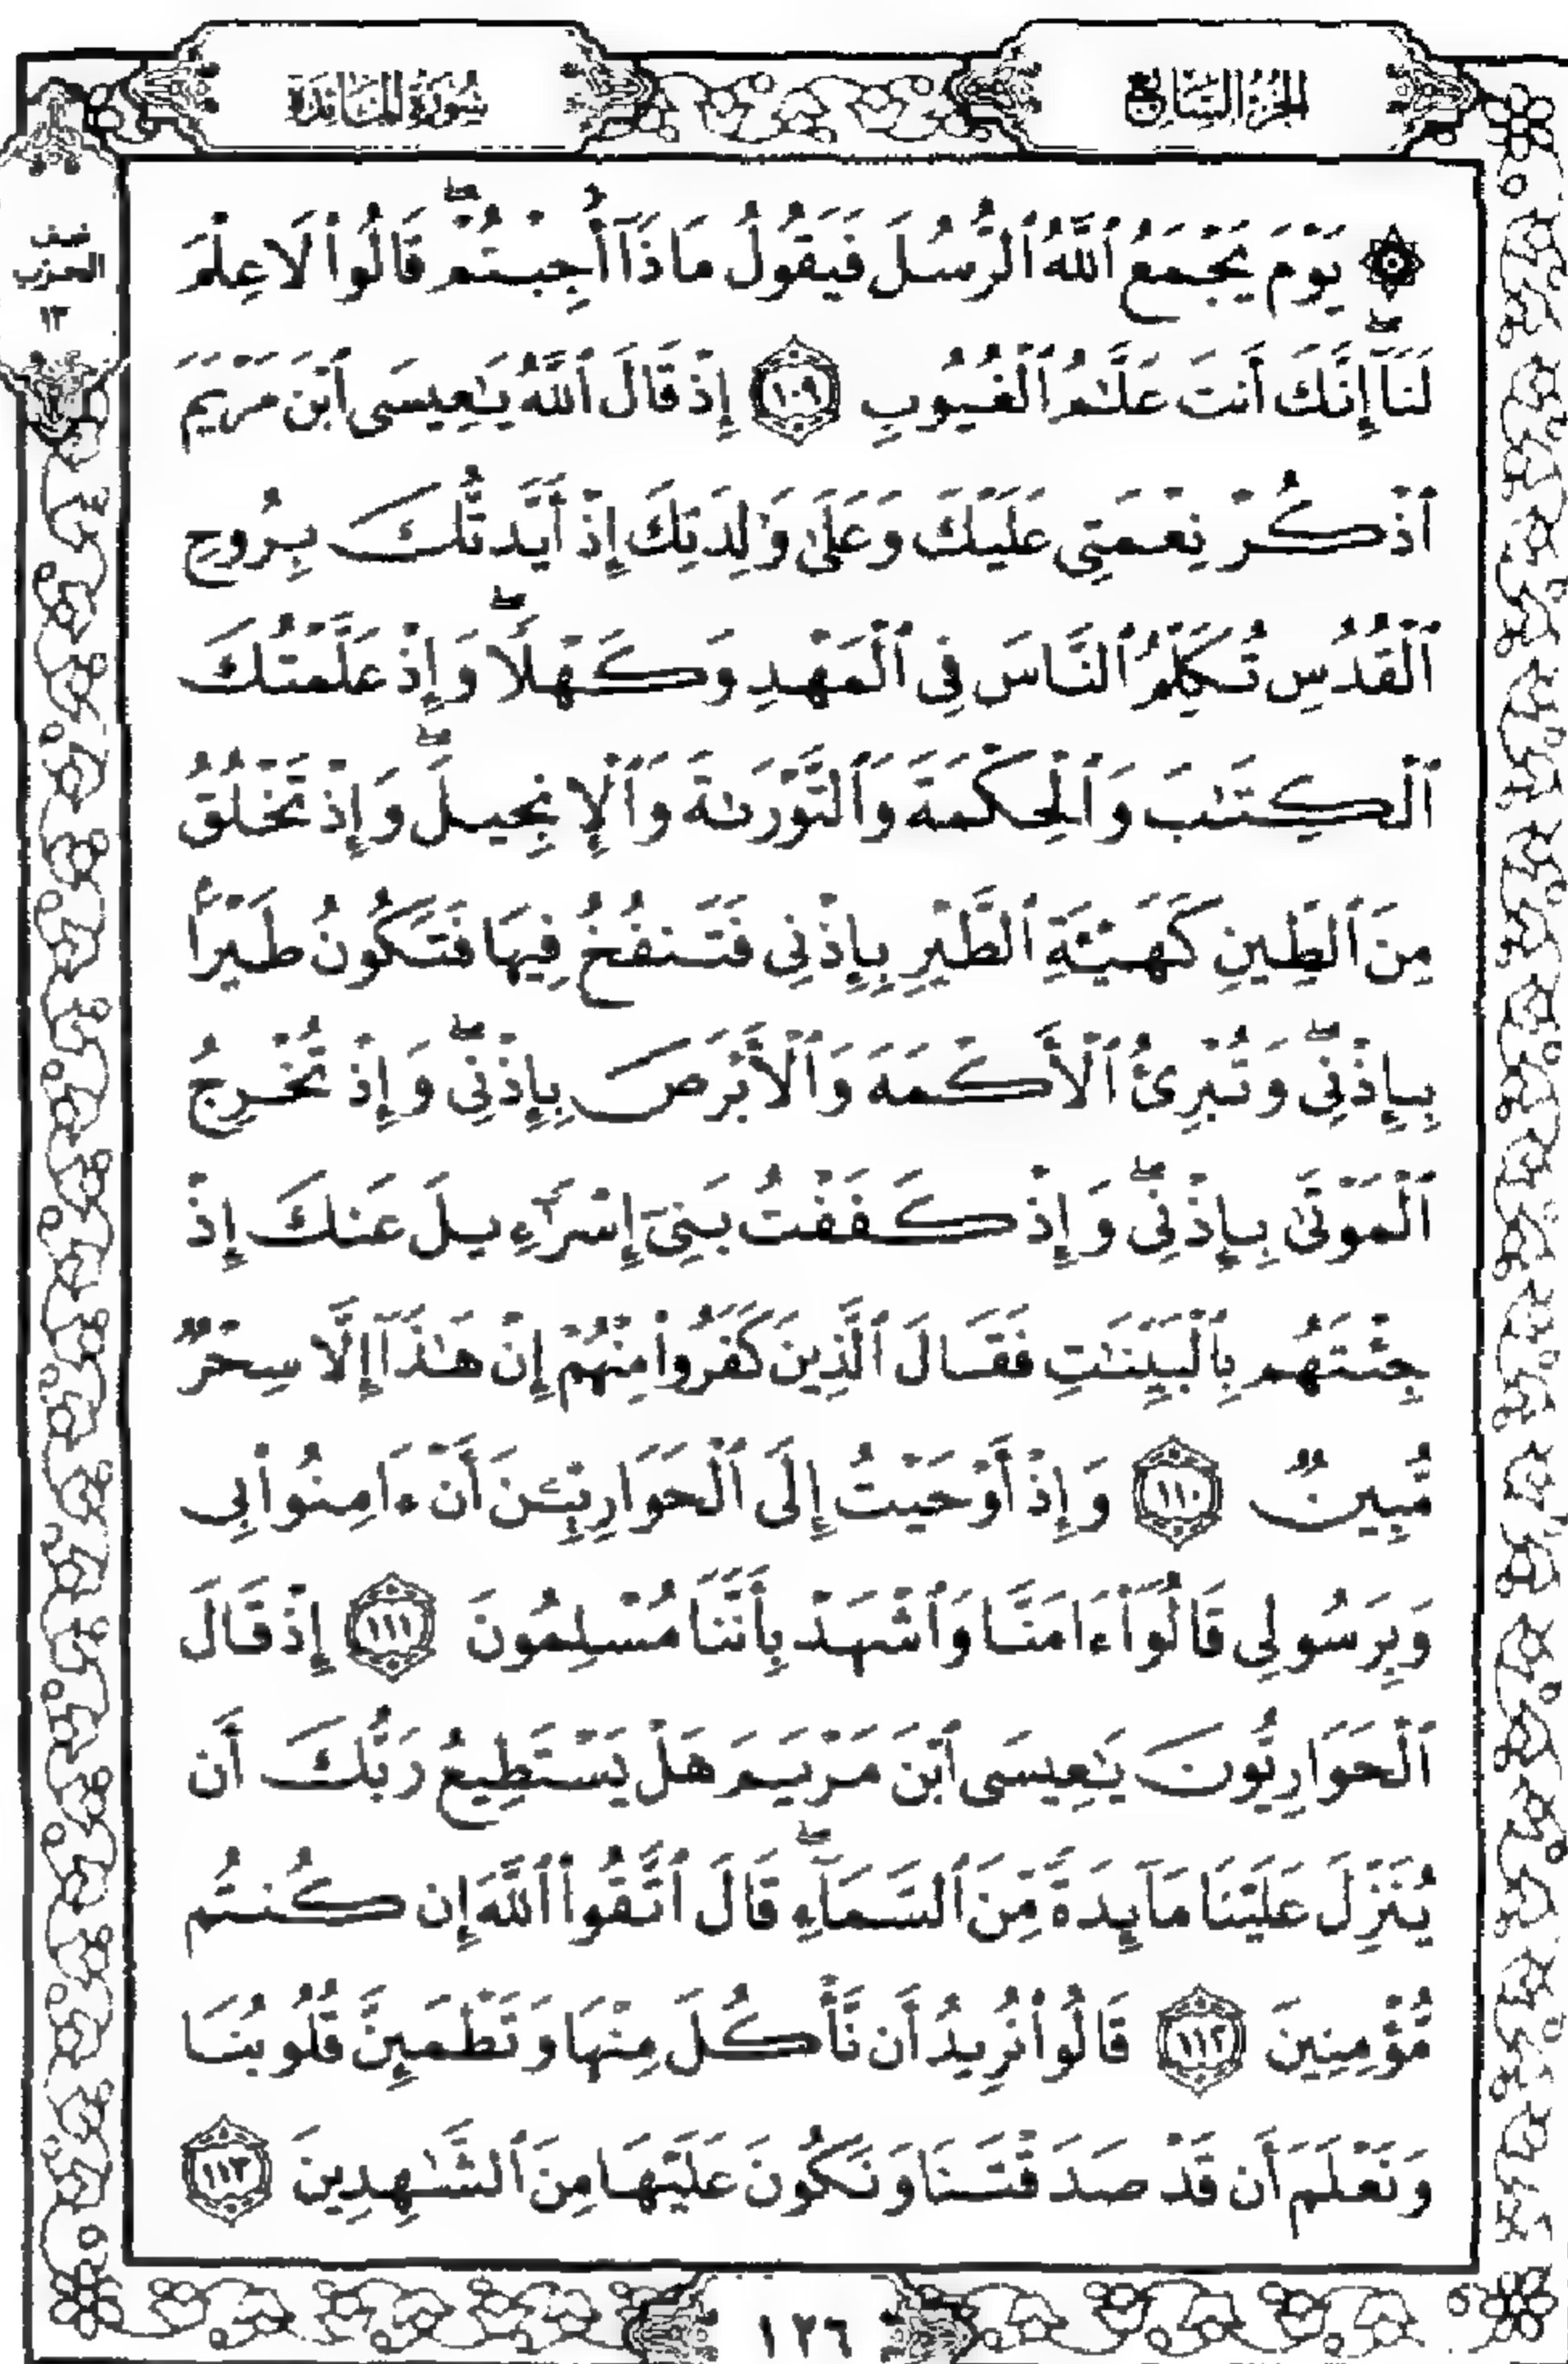 الجزء السابع
سورة المائدة
نصف
الحزب
١٣
۞ يَوْمَ يَجْمَعُ ٱللَّهُ ٱلرُّسُلَ فَيَقُولُ مَاذَآ أُجِبْتُمْ ۖ قَالُوا۟ لَا عِلْمَ
لَنَآ ۖ إِنَّكَ أَنتَ عَلَّٰمُ ٱلْغُيُوبِ ١٠٩ إِذْ قَالَ ٱللَّهُ يَٰعِيسَى ٱبْنَ مَرْيَمَ
ٱذْكُرْ نِعْمَتِى عَلَيْكَ وَعَلَىٰ وَٰلِدَتِكَ إِذْ أَيَّدتُّكَ بِرُوحِ
ٱلْقُدُسِ تُكَلِّمُ ٱلنَّاسَ فِى ٱلْمَهْدِ وَكَهْلًا ۖ وَإِذْ عَلَّمْتُكَ
ٱلْكِتَٰبَ وَٱلْحِكْمَةَ وَٱلتَّوْرَىٰةَ وَٱلْإِنجِيلَ ۖ وَإِذْ تَخْلُقُ
مِنَ ٱلطِّينِ كَهَيْـَٔةِ ٱلطَّيْرِ بِإِذْنِى فَتَنفُخُ فِيهَا فَتَكُونُ طَيْرًۢا
بِإِذْنِى ۖ وَتُبْرِئُ ٱلْأَكْمَهَ وَٱلْأَبْرَصَ بِإِذْنِى ۖ وَإِذْ تُخْرِجُ
ٱلْمَوْتَىٰ بِإِذْنِى ۖ وَإِذْ كَفَفْتُ بَنِىٓ إِسْرَٰٓءِيلَ عَنكَ إِذْ
جِئْتَهُم بِٱلْبَيِّنَٰتِ فَقَالَ ٱلَّذِينَ كَفَرُوا۟ مِنْهُمْ إِنْ هَٰذَآ إِلَّا سِحْرٌ
مُّبِينٌ ١١٠ وَإِذْ أَوْحَيْتُ إِلَى ٱلْحَوَارِيِّـۧنَ أَنْ ءَامِنُوا۟ بِى
وَبِرَسُولِى قَالُوٓا۟ ءَامَنَّا وَٱشْهَدْ بِأَنَّنَا مُسْلِمُونَ ١١١ إِذْ قَالَ
ٱلْحَوَارِيُّونَ يَٰعِيسَى ٱبْنَ مَرْيَمَ هَلْ يَسْتَطِيعُ رَبُّكَ أَن
يُنَزِّلَ عَلَيْنَا مَآئِدَةً مِّنَ ٱلسَّمَآءِ ۖ قَالَ ٱتَّقُوا۟ ٱللَّهَ إِن كُنتُم
مُّؤْمِنِينَ ١١٢ قَالُوا۟ نُرِيدُ أَن نَّأْكُلَ مِنْهَا وَتَطْمَئِنَّ قُلُوبُنَا
وَنَعْلَمَ أَن قَدْ صَدَقْتَنَا وَنَكُونَ عَلَيْهَا مِنَ ٱلشَّٰهِدِينَ ١١٣
١٢٦